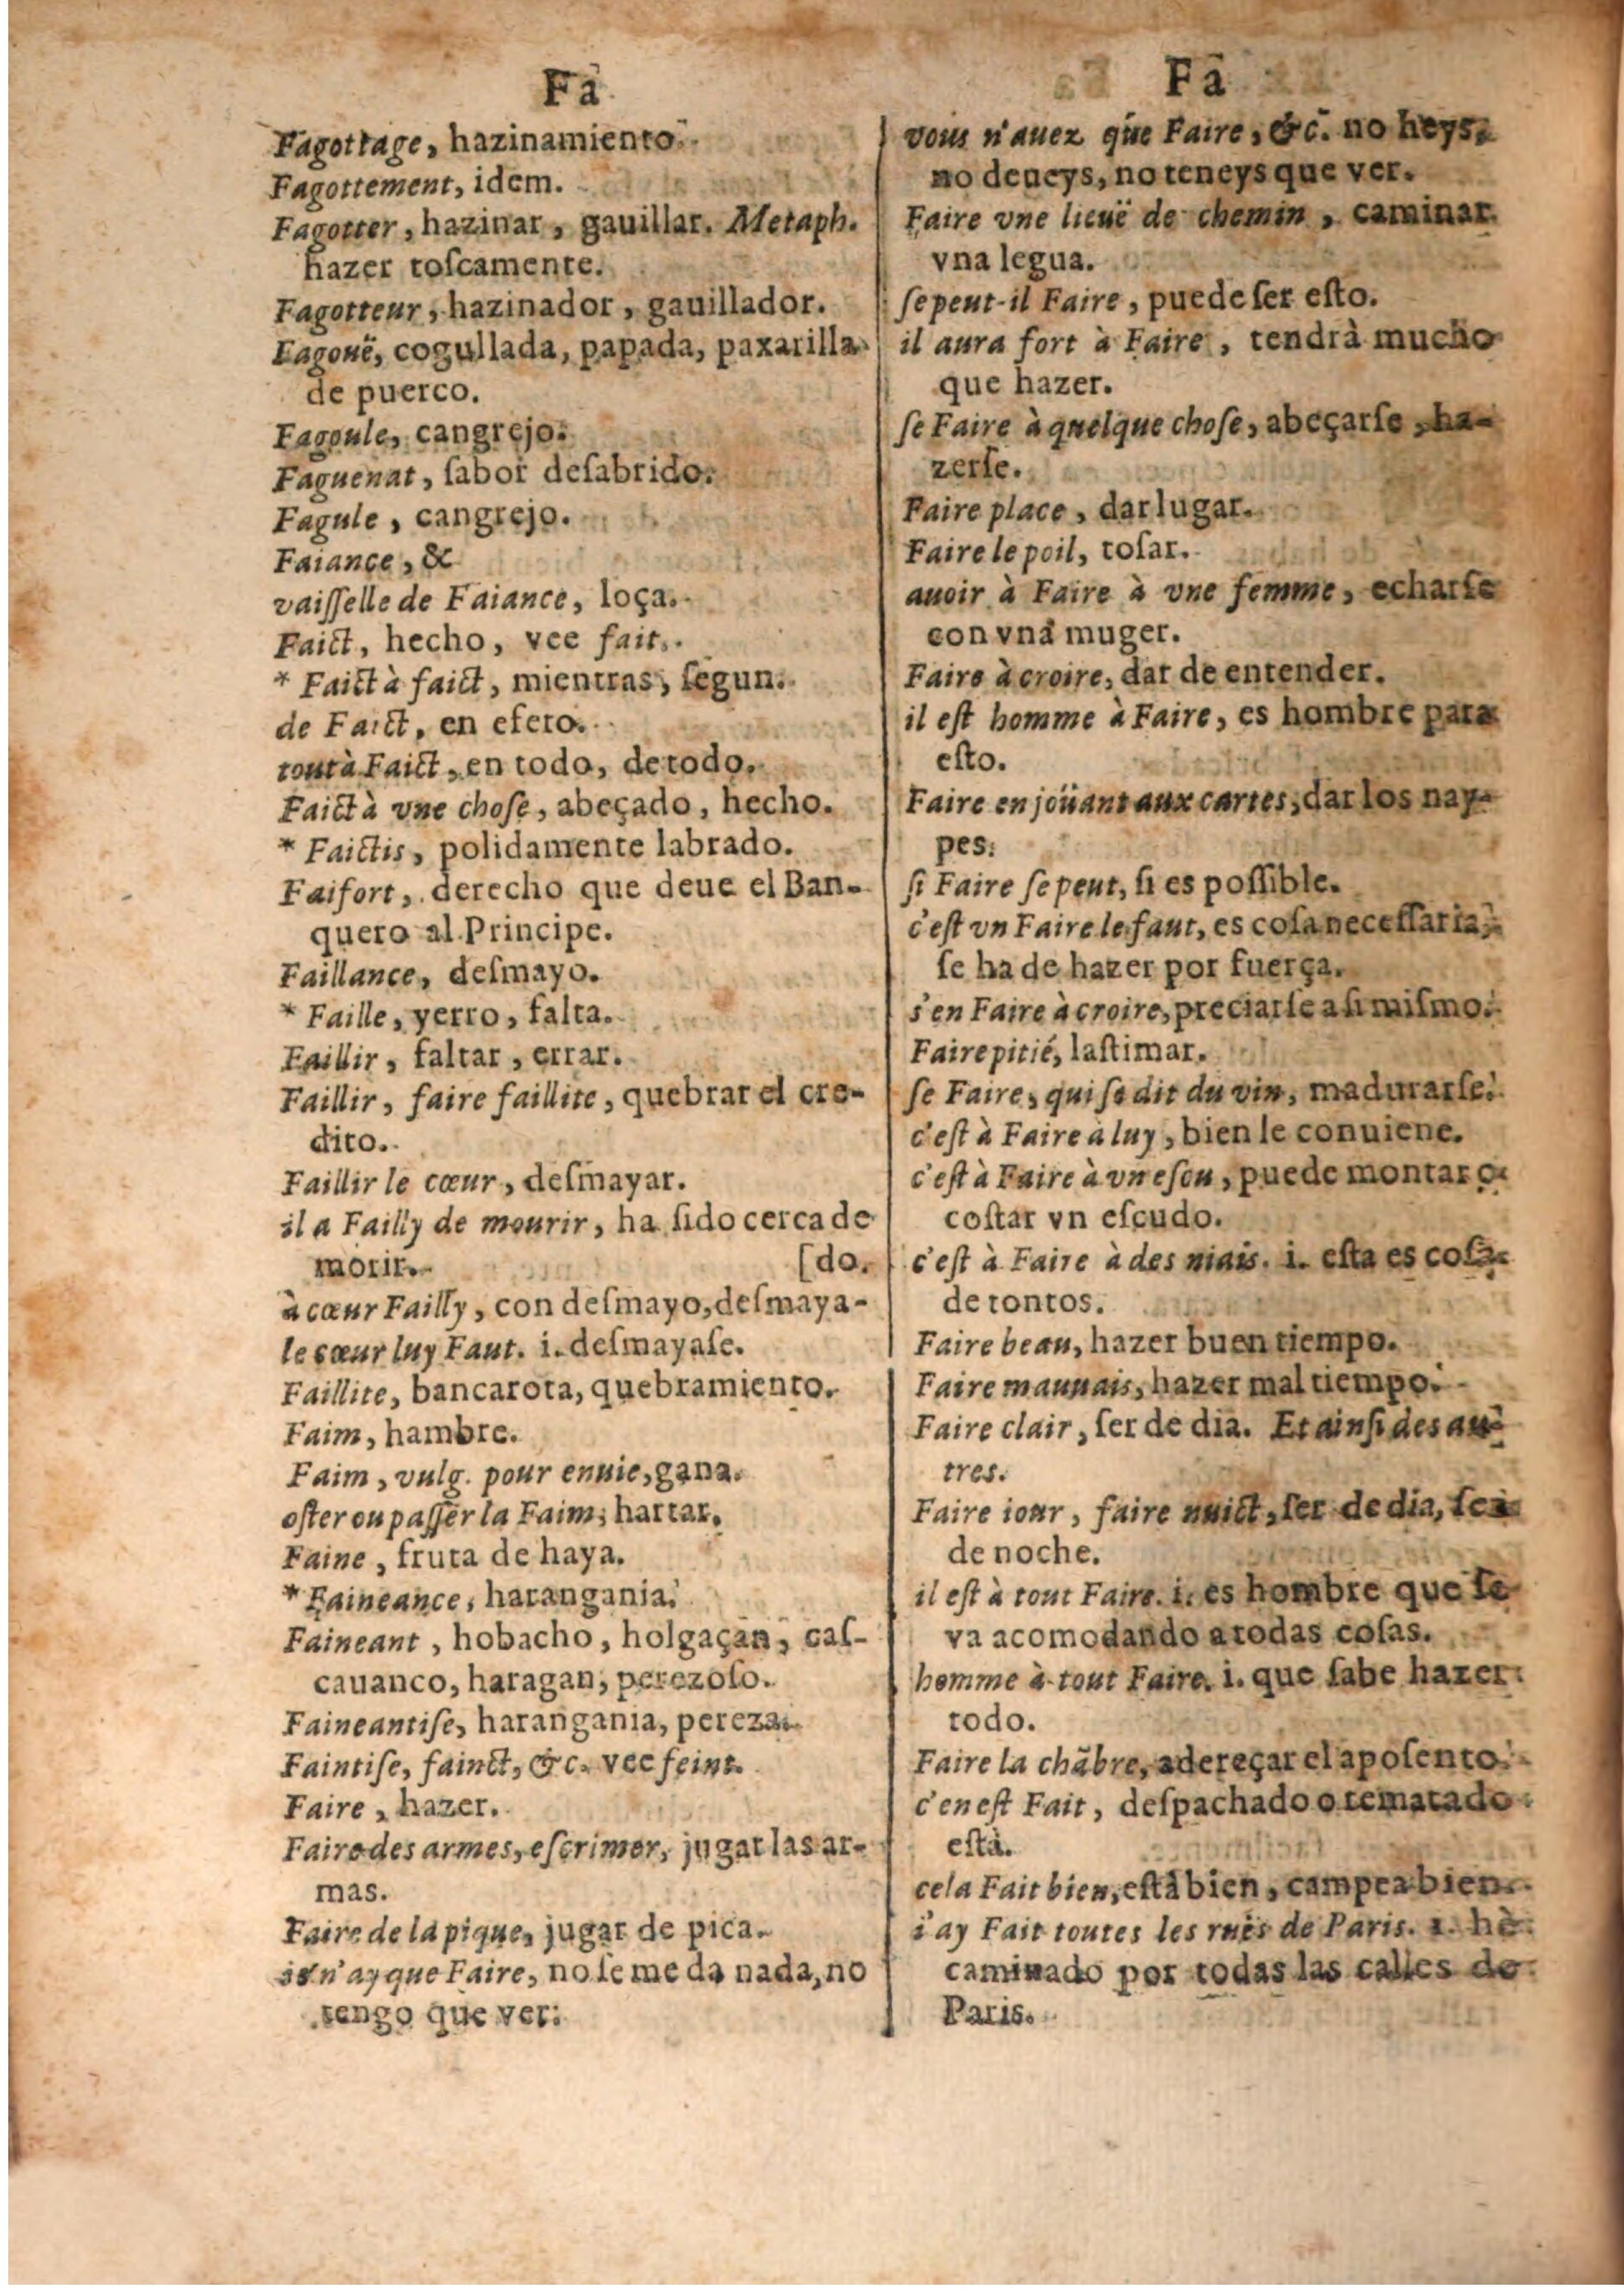 Fa
Fagottage, hazinamiento.
Fagottement, idem.
Fagotter, hazinar, gauillar. Metaph.
hazer toſcamente.
Fagotteur, hazinador, gauillador.
Fagouë, cogullada, papada, paxarilla
de puerco.
Fagoule, cangrejo.
Faguenat, ſabor deſabrido.
Fagule, cangrejo.
Faiance, &
vaiſſelle de Faiance, loça.
Faict, hecho, vee fait.
* Faict à faict, mientras, ſegun.
de Faict, en efeto.
tout à Faict, en todo, de todo.
Faict à vne choſe, abeçado, hecho.
* Faictis, polidamente labrado.
Faifort, derecho que deue el Ban-
quero al Principe.
Faillance, deſmayo.
* Faille, yerro, falta.
Faillir, faltar, errar.
Faillir, faire faillite, quebrar el cre-
dito.
Faillir le cœur, deſmayar.
il a Failly de mourir, ha ſido cerca de
morir. [do.
à cœur Failly, con deſmayo, deſmaya-
le cœur luy Faut. i. deſmayaſe.
Faillite, bancarota, quebramiento.
Faim, hambre.
Faim, vulg. pour enuie, gana.
oſter ou paſſer la Faim, hartar.
Faine, fruta de haya.
* Faineance, harangania.
Faineant, hobacho, holgaçan, caſ-
cauanco, haragan, perezoſo.
Faineantiſe, harangania, pereza.
Faintiſe, fainct, &c. vee feint.
Faire, hazer.
Faire des armes, eſcrimer, jugar las ar-
mas.
Faire de la pique, jugar de pica.
ie n'ay que Faire, no ſe me da nada, no
tengo que ver.
Fa
vous n'auez que Faire, &c. no heys,
no deueys, no teneys que ver.
Faire vne lieuë de chemin, caminar
vna legua.
ſe peut-il Faire, puede ſer eſto.
il aura fort à Faire, tendrà mucho
que hazer.
ſe Faire à quelque choſe, abeçarſe, ha-
zerſe.
Faire place, dar lugar.
Faire le poil, toſar.
auoir à Faire à vne femme, echarſe
con vna muger.
Faire à croire, dar de entender.
il eſt homme à Faire, es hombre para
eſto.
Faire en joüant aux cartes, dar los nay-
pes.
ſi Faire ſe peut, ſi es poſſible.
c'eſt vn Faire le faut, es coſa neceſſaria,
ſe ha de hazer por fuerça.
s'en Faire à croire, preciarſe a ſi miſmo.
Faire pitié, laſtimar.
ſe Faire, qui ſe dit du vin, madurarſe.
c'eſt à Faire à luy, bien le conuiene.
c'eſt à Faire à vn eſcu, puede montar o
coſtar vn eſcudo.
c'eſt à Faire à des niais. i. eſta es coſa
de tontos.
Faire beau, hazer buen tiempo.
Faire mauuais, hazer mal tiempo.
Faire clair, ſer de dia. Et ainſi des au-
tres.
Faire iour, faire nuict, ſer de dia, ſer
de noche.
il eſt à tout Faire. i. es hombre que ſe
va acomodando a todas coſas.
homme à tout Faire. i. que ſabe hazer
todo.
Faire la chãbre, adereçar el apoſento.
c'en eſt Fait, deſpachado o rematado
eſtà.
cela Fait bien, eſtà bien, campea bien.
i'ay Fait toutes les ruës de Paris. i. hè
caminado por todas las calles de
Paris.